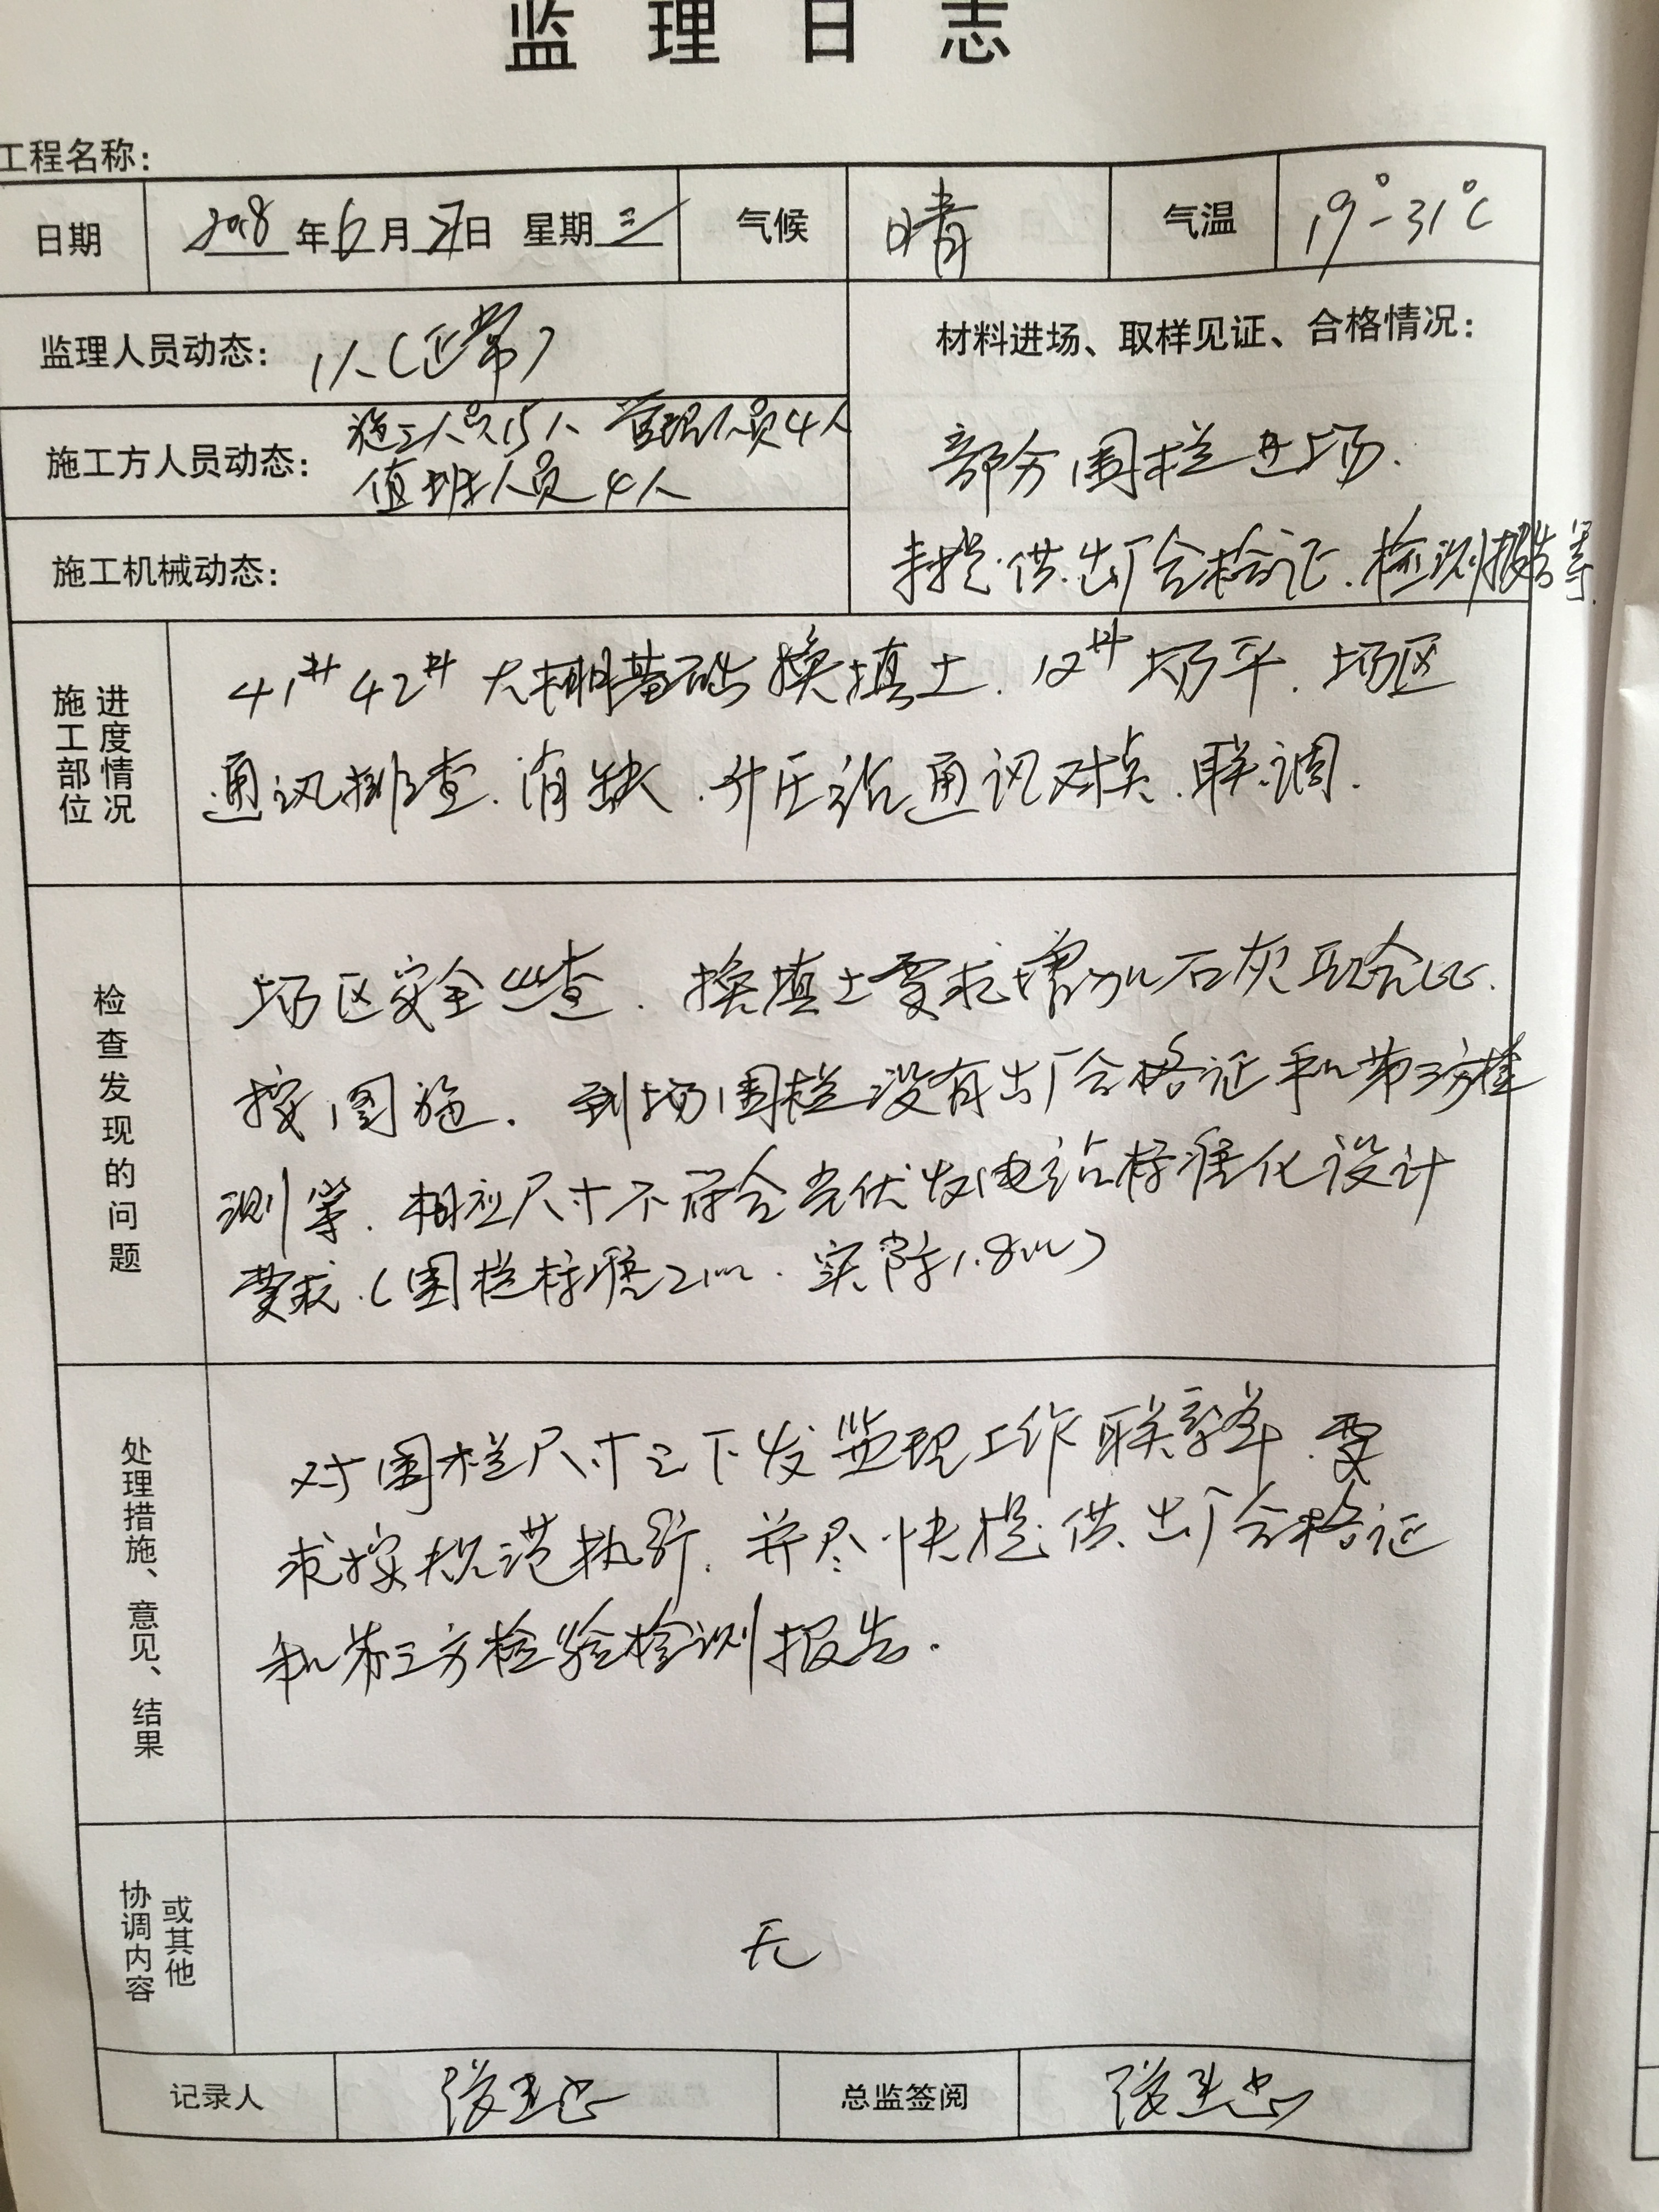 监理日志
工程名称：
日期 2018年6月27日 星期三 气候 晴 气温 19°-31℃
监理人员动态： 1人（正常）
材料进场、取样见证、合格情况：
施工方人员动态： 施工人员15人 管理人员4人
值班人员4人
部分围栏进场.
未提供出厂合格证.检测报告等.
施工机械动态：
施工部位 进度情况
41# 42# 大棚基础换填土. 12# 场平. 场区
通讯排查.消缺.升压站通讯对点.联调.
检查发现的问题
场区安全巡查. 换填土要求增加石灰配合比.
按图施. 到场围栏没有出厂合格证和第三方检
测等. 相应尺寸不符合光伏发电站标准化设计
要求.（围栏标准2m. 实际1.8m）
处理措施、意见、结果
对围栏尺寸已下发监理工作联系单.要
求按规范执行. 并尽快提供出厂合格证
和第三方检验检测报告.
协调内容 或其他
无
记录人 总监签阅